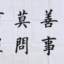 善事
莫問